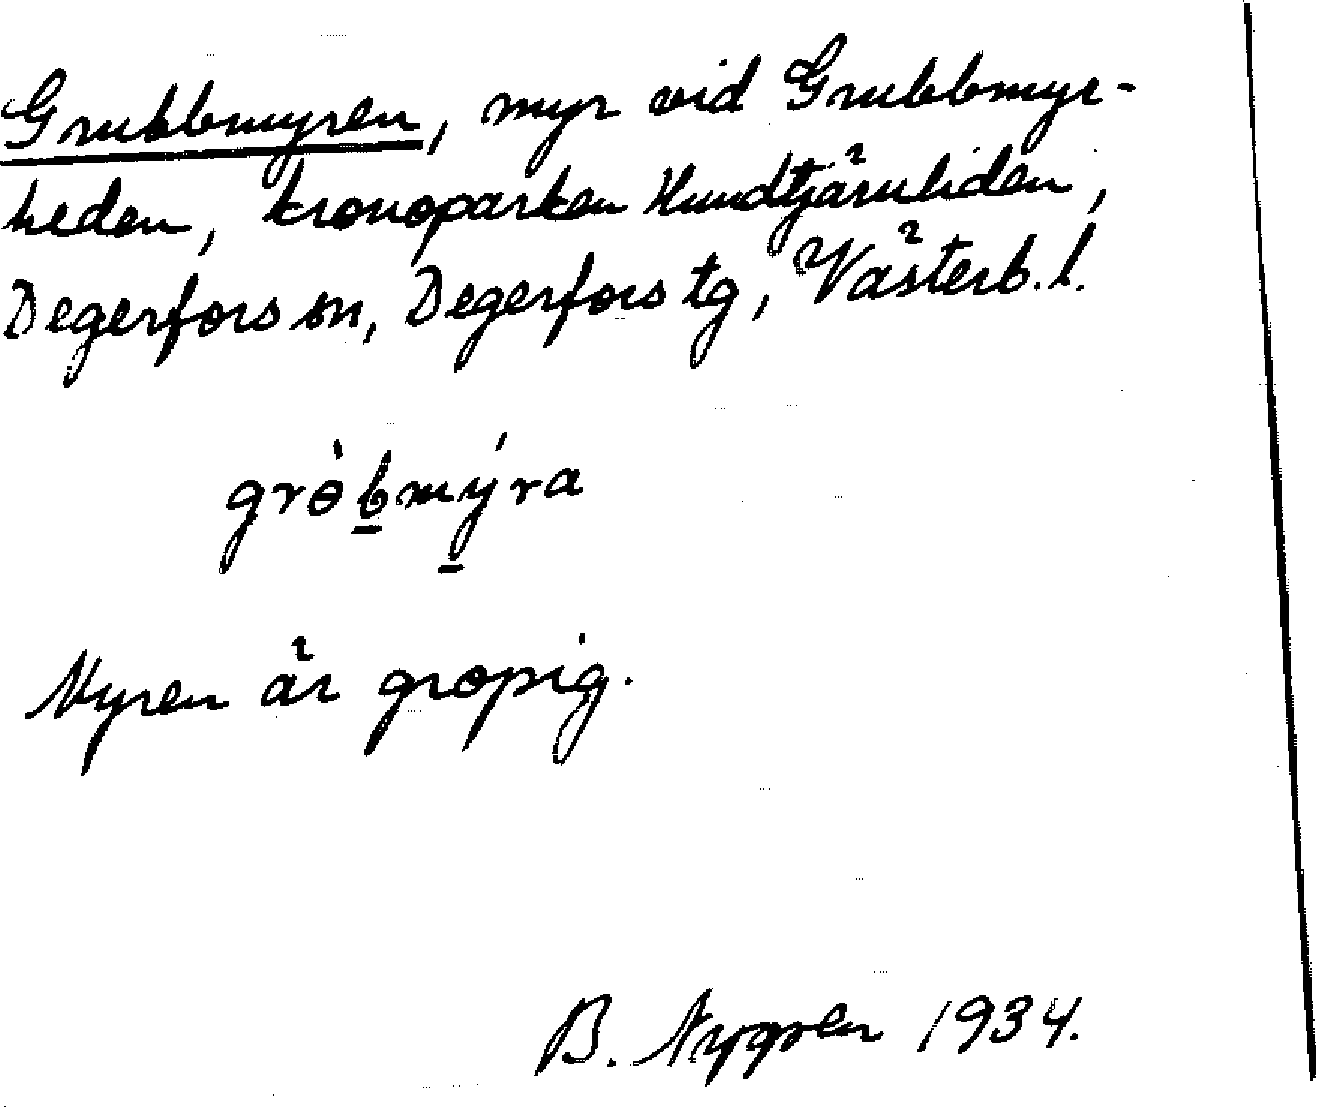 Grubbmyren, myr vid Grubbmyr-
heden, kronoparken Hundtjärnliden,
Degerfors sn, Degerfors tg, Västerb. l.
grө̀b̲mý̲ra
Myren är gropig.
B. Nygren 1934.